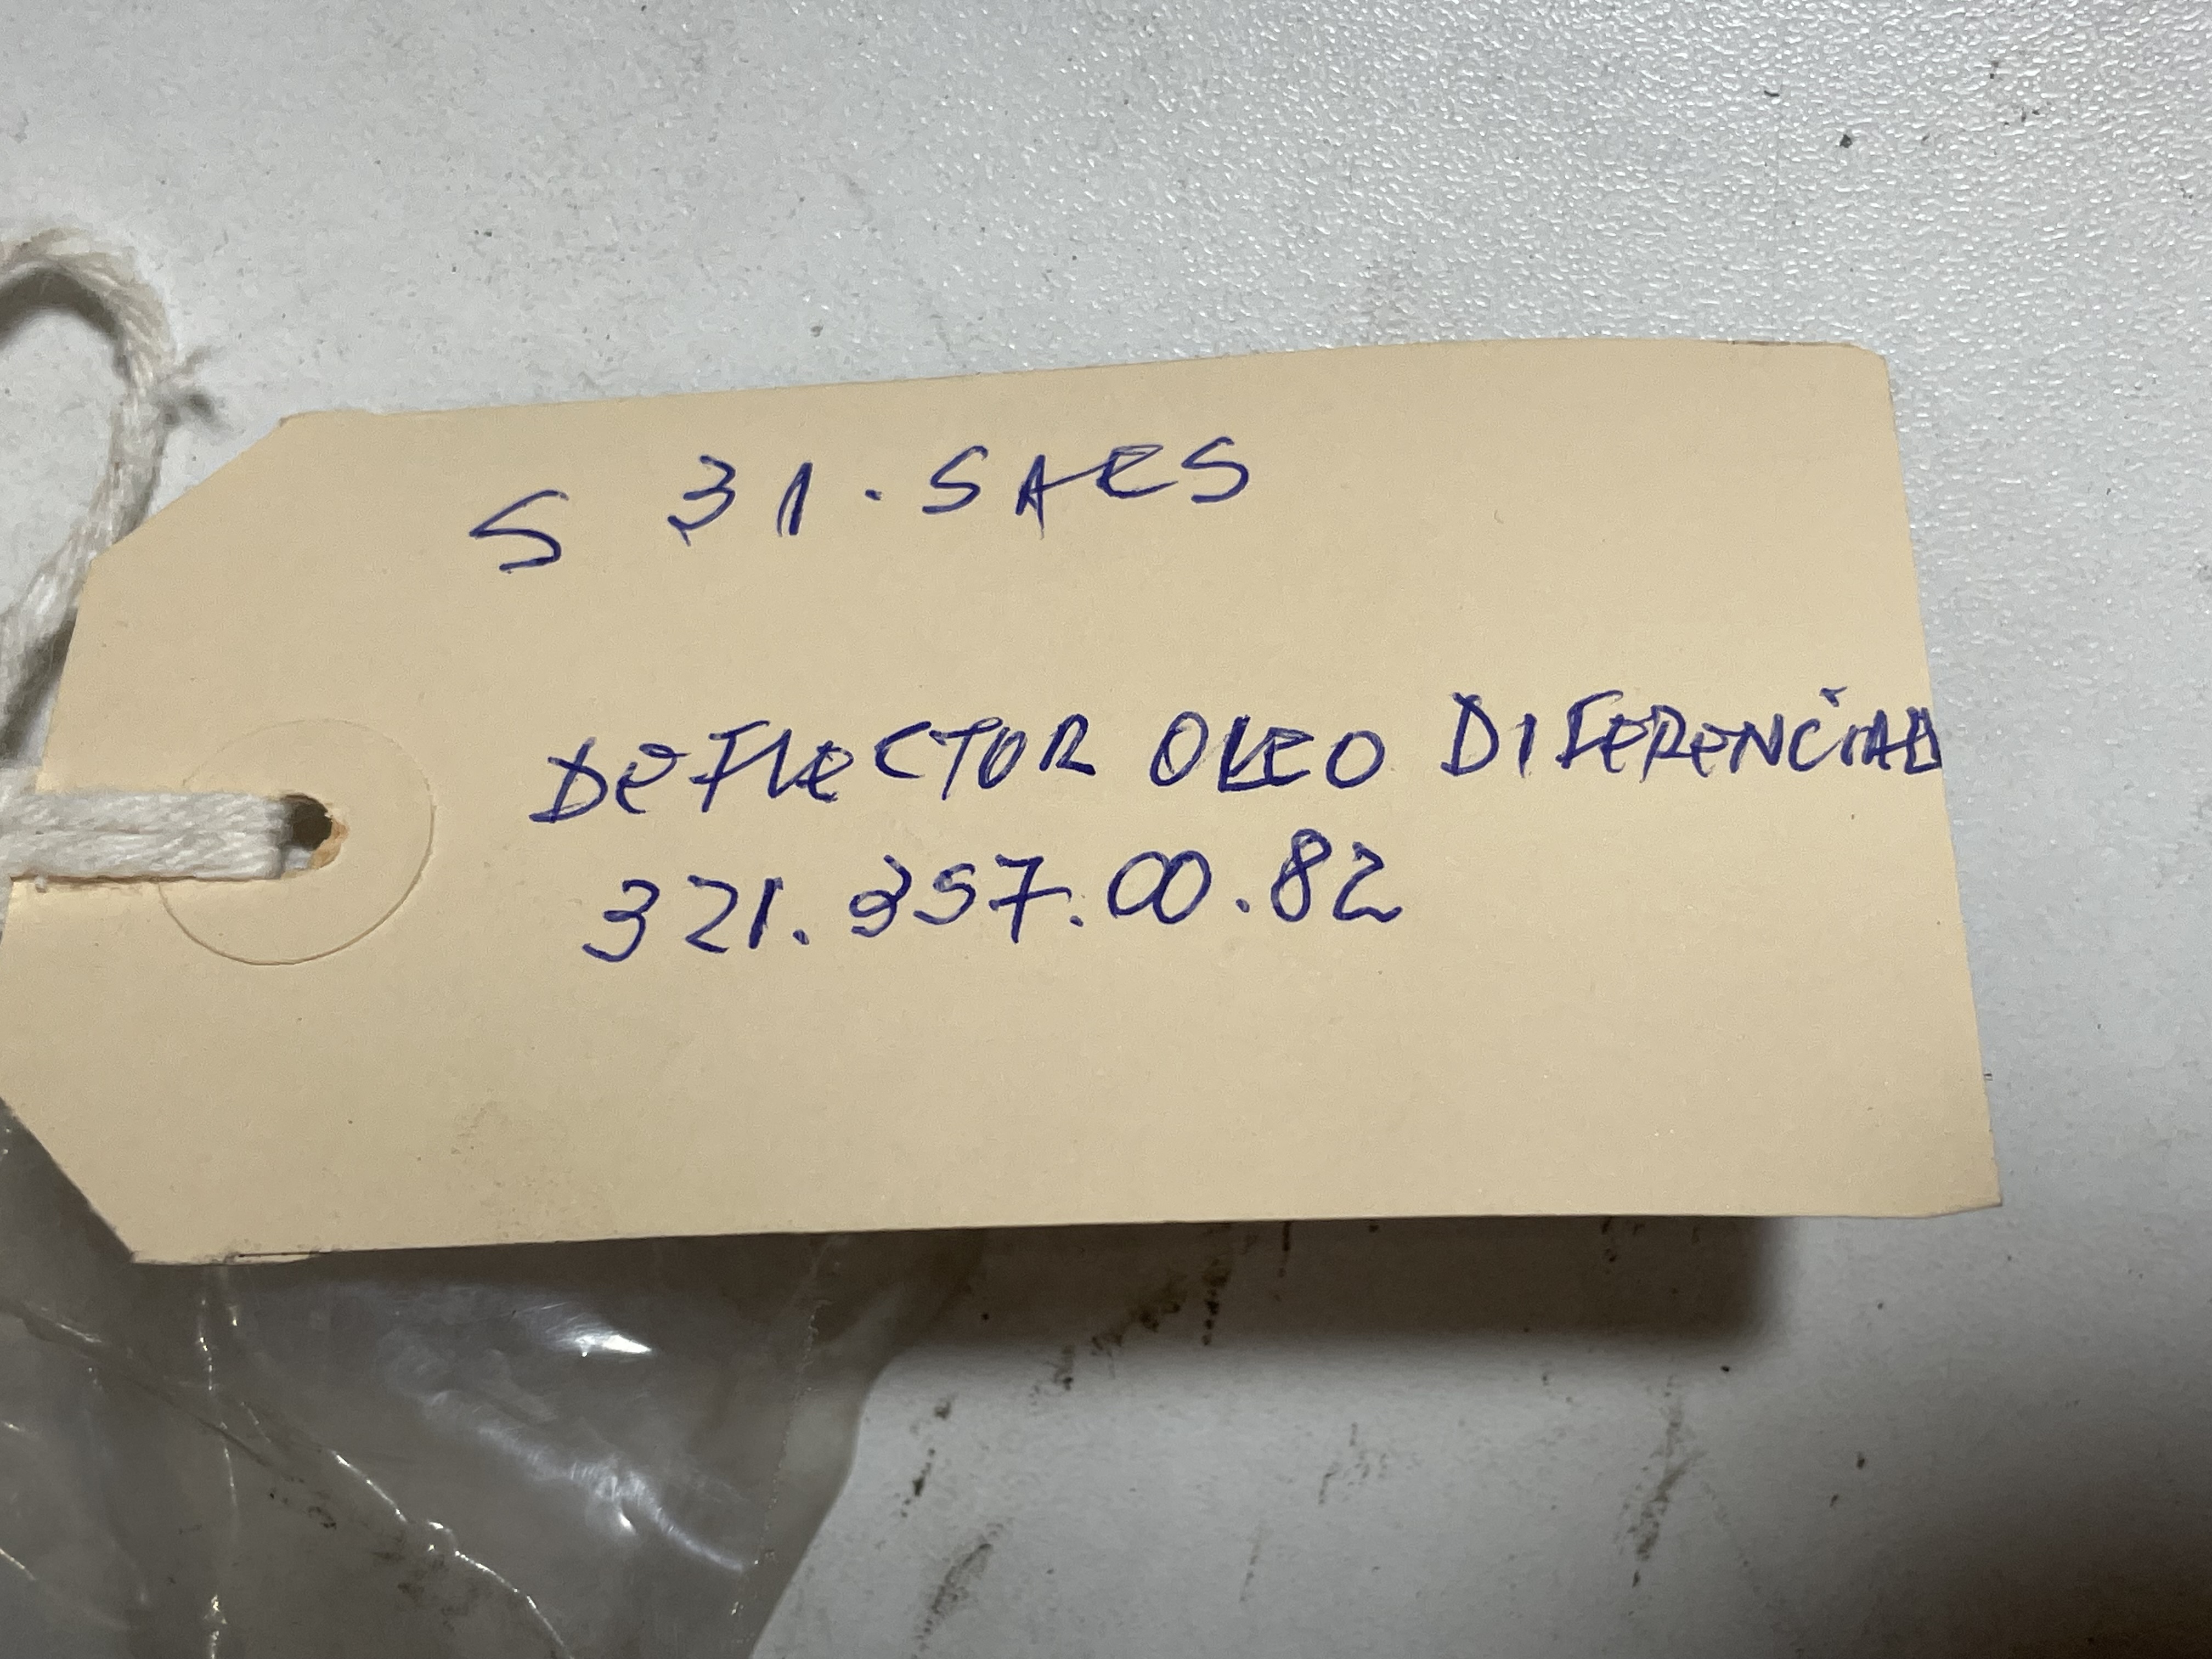 S 31.SAES
DEFLECTOR OLEO DIFERENCIAL
321.957.00.82